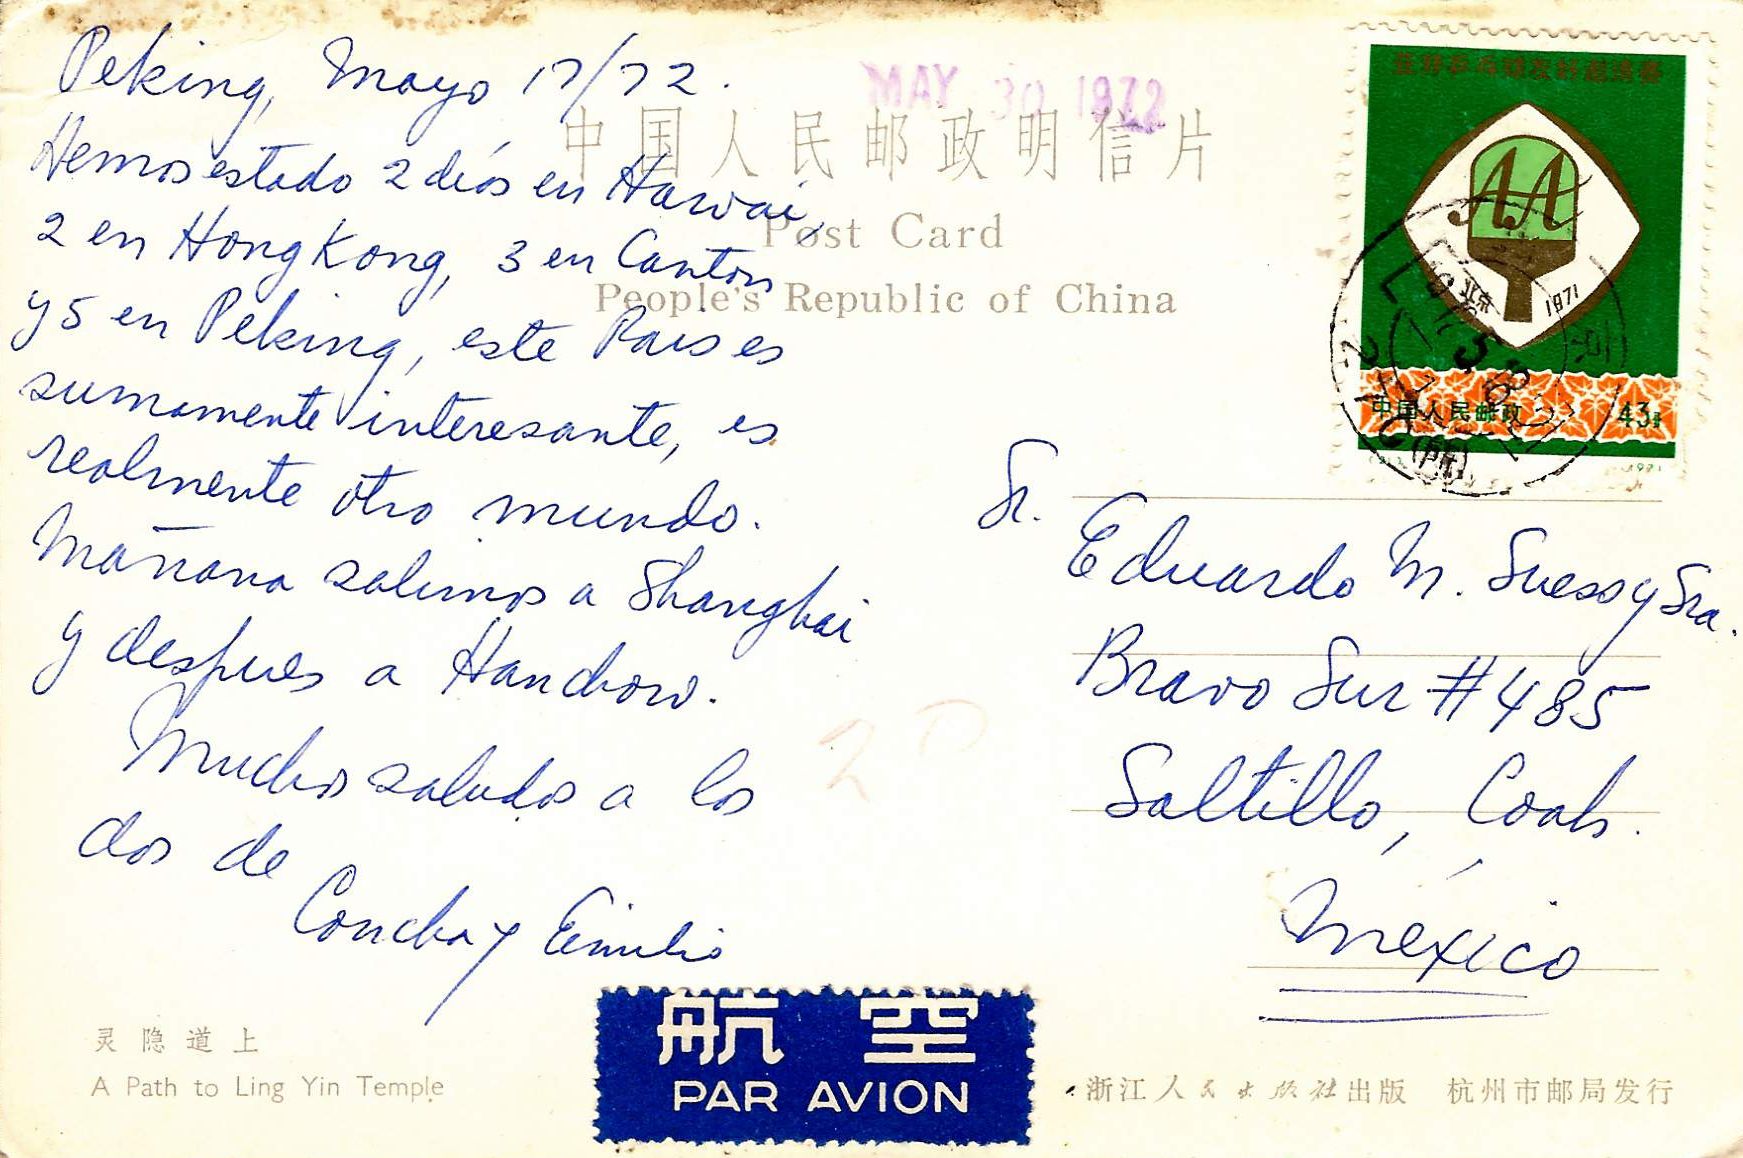 Peking, Mayo 17/72.
Hemos estado 2 días en Hawai,
2 en Hong Kong, 3 en Canton
y 5 en Peking, este Pais es
sumamente interesante, es
realmente otro mundo.
Mañana salimos a Shanghai
y despues a Hanchow.
Muchos saludos a los
dos de
Concha y Emilio
MAY 30 1972
中国人民邮政明信片
Post Card
People's Republic of China
亚非乒乓球友好邀请赛
AA
北京
1971
中国人民邮政
43分
Sr. Eduardo M. Suess y Sra.
Bravo Sur #485
Saltillo, Coah.
México
灵隐道上
A Path to Ling Yin Temple
航空
PAR AVION
浙江人民出版社出版 杭州市邮局发行